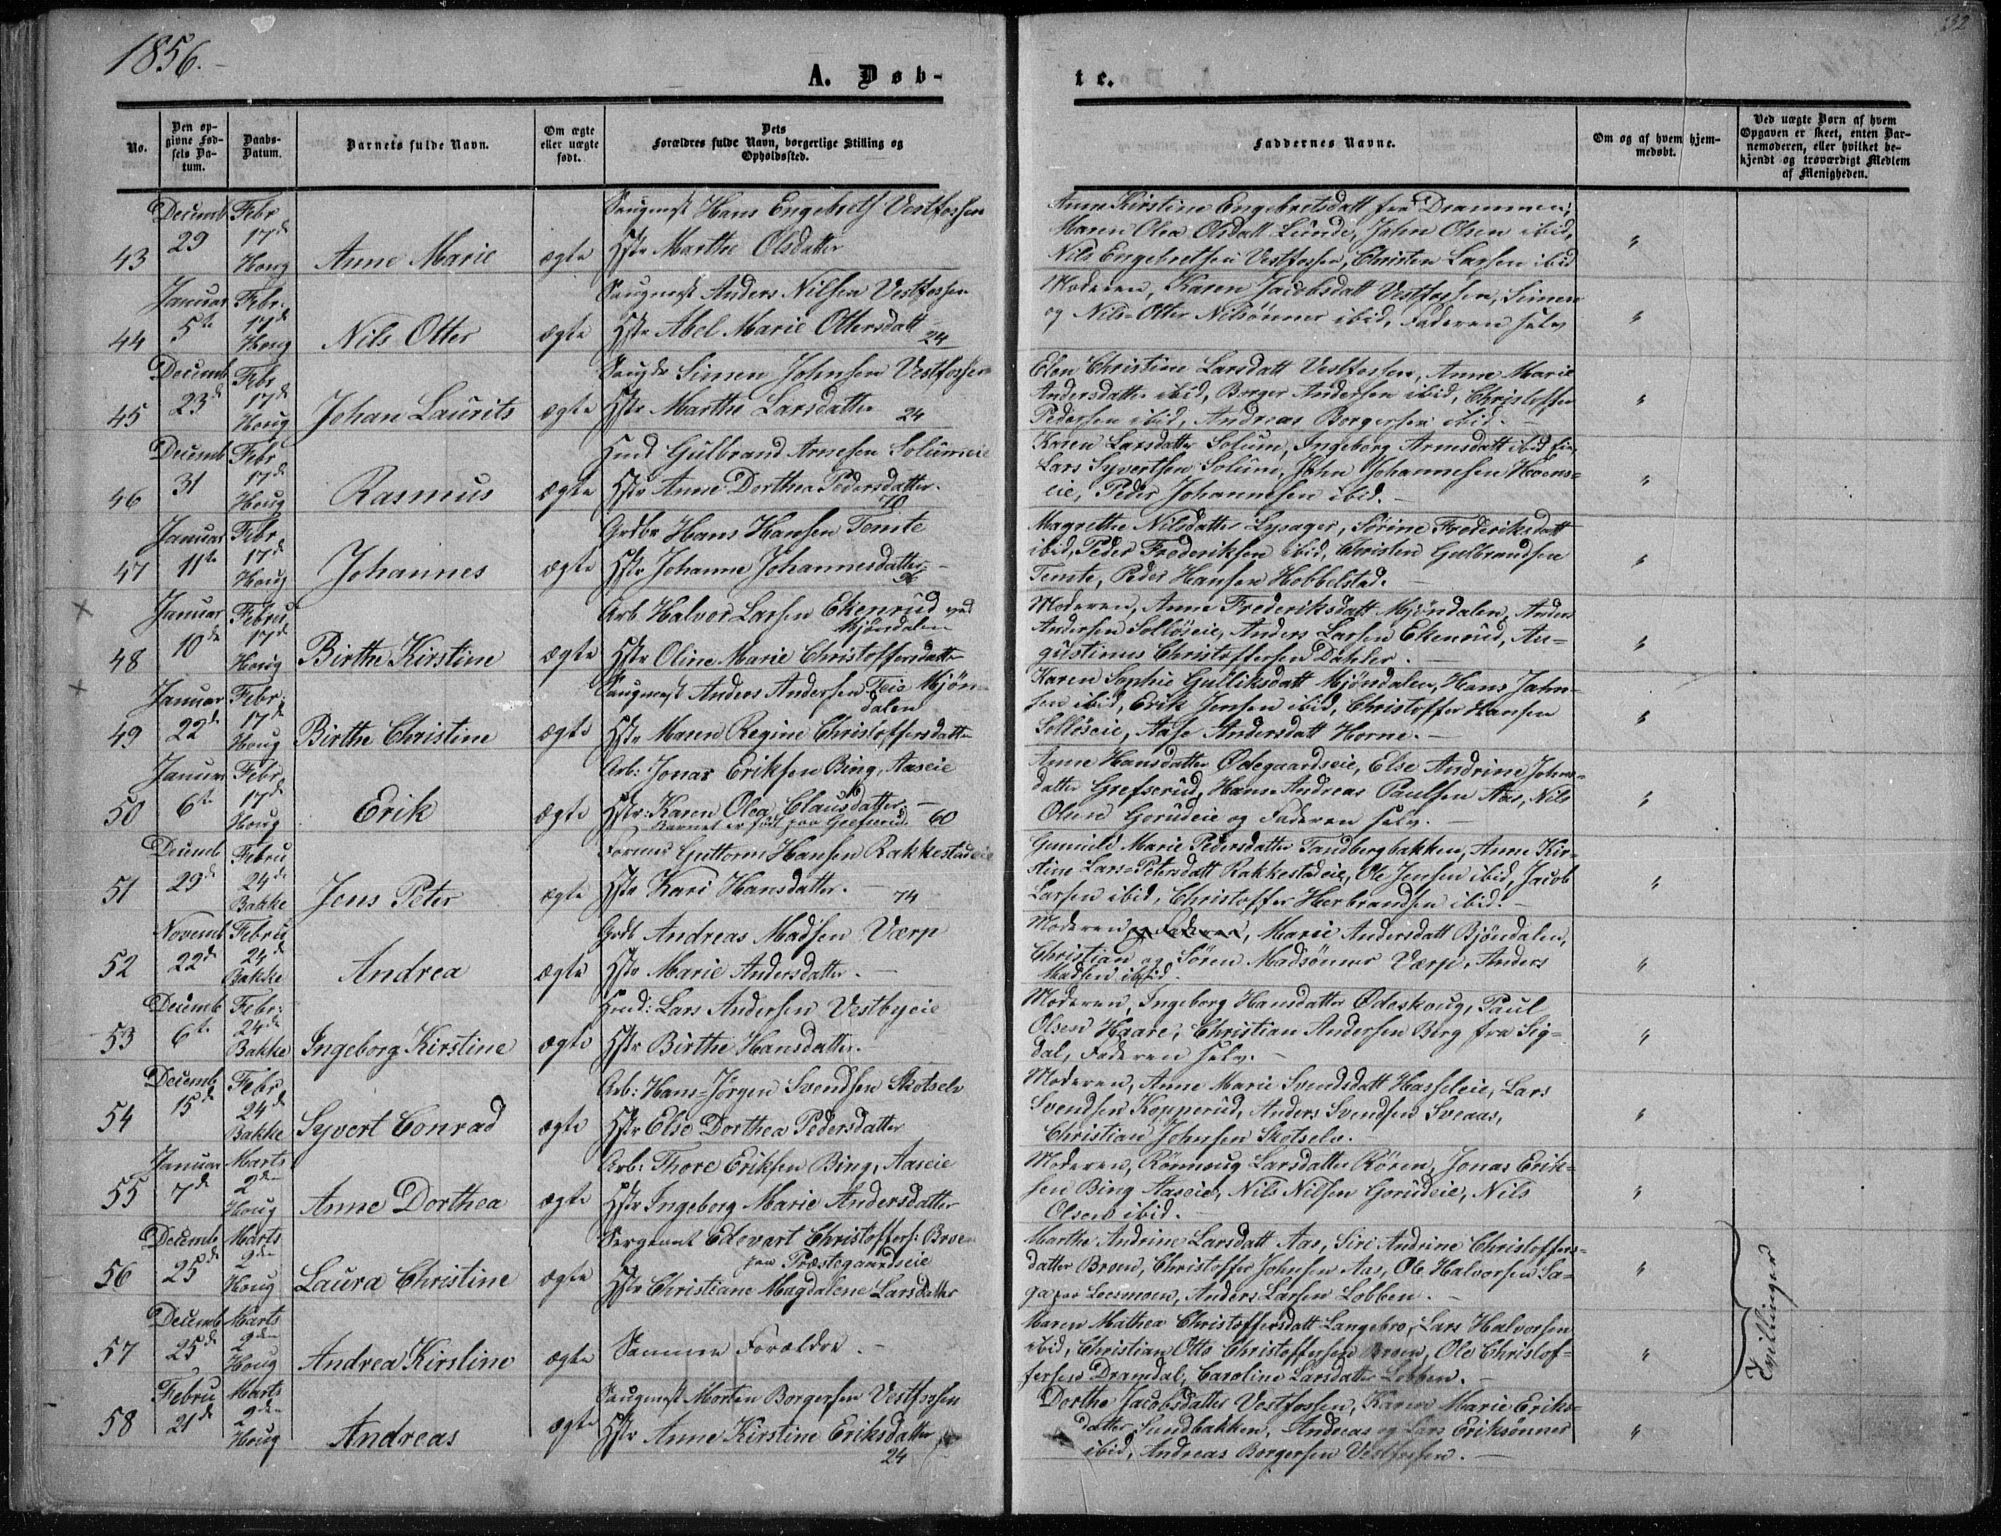 1856.
32
A. Døb-
te.
No.
Den op-
givne Fød-
sels Da-
tum.
Daabs-
Datum.
Barnets fulde Navn.
Om ægte
eller uægte
født.
Dets
Forældres fulde Navn, borgerlige Stilling og
Opholdssted.
Faddernes Navne.
Om og af hvem hjem-
medøbt.
Ved uægte Børn af hvem
Opgaven er skeet, enten Bar-
nemoderen, eller hvilket be-
kjendt og troværdigt Medlem
af Menigheden.
43
Decemb
29
Febr
17de
Houg
Anne Marie
ægte
Saugmest Hans Engebrets Vestfossen
Hstr Marthe Olsdatter
Anne Kirstine Engebretsdatt fra Drammen,
Maren Olea Olsdatt Lunde, John Olsen ibid,
Nils Engebretsen Vestfossen, Christen Larsen ibid
"
44
Januar
5te
Febr.
17de
Houg
Nils Otter
ægte
Saugmest Anders Nilsen Vestfossen
Hstr Abel Marie Ottersdatt
24
Moderen, Karen Jacobsdatt Vestfossen, Simen
og Nils Otter Nilsønner ibid, Faderen selv
"
45
Decemb
23de
Febr
17de
Houg
Johan Laurits
ægte
Simen Johnsen Vestfossen
Hstr Marthe Larsdatter
24
Elen Christine Larsdatt Vestfossen, Anne Marie
Andersdatter ibid, Borger Andersen ibid, Christoffer
Pedersen ibid, Andreas Borgersen ibid. -
"
46
Decemb
31
Febr
17de
Houg
Rasmus
ægte
Husd Gulbrand Arnesen Solumeie
Hstr Anne Dorthea Pedersdatter.
70
Karen Larsdatter Solum, Ingeborg Arnesdatt ibid
Lars Syvertsen Solum, John Johannesen Hoens-
eie, Peder Johannesen ibid. -
"
47
Januar
11te
Febr
17de
Houg
Johannes
ægte
Grdbr Hans Hansen Temte
Hstr Johanne Johannesdatter -
96
Magrethe Nilsdatter Lysager, Sørine Frederiksdatt
ibid, Peder Frederiksen ibid, Christen Gulbrandsen
Temte, Peder Hansen Hobbelstad.
"
48
Januar
10de
Febru
17de
Houg
Birthe Kirstine
ægte
Arb Halvor Larsen Ekenrud ved
Mjøndalen
Hstr Oline Marie Christoffersdatter
Moderen, Anne Frederiksdatt Mjøndalen, Anders
Andersen Solløseie, Anders Larsen Ekenrud, Au-
gustinus Christoffersen Dahler. -
"
49
Januar
22de
Febr
17de
Houg
Birthe Christine
ægte
Saugmest Anders Andersen Teie Mjøn-
dalen
Hstr Maren Regine Christoffersdatter
Karen Sophie Gulliksdatt Mjøndalen, Hans Jahn-
sen ibid, Erik Jensen ibid, Christoffer Hansen
Solløseie, Aase Andersdatt Horne. -
"
50
Januar
6te
Febr
17de
Houg
Erik
ægte
Arb: Jonas Eriksen Bing, Aaseie
Hstr: Karen Olea Clausdatter -
Barnet er født paa Grefserud. 60
Anne Hansdatter Ødegaardseie, Else Andrine Johns-
datter Grefserud, Hans Andreas Paulsen Aas, Nils
Olsen Gorudeie og Faderen selv. -
"
51
Decemb
29de
Febru
24de
Bakke
Jens Peter
ægte
Former Guttorm Hansen Rakkestadeie
Hstr Kari Hansdatter. -
74
Gunnild Marie Pedersdatter Tandbergbakken, Anne Kir-
stine Lars=Petersdatt Rakkestadeie, Ole Jensen ibid, Jacob
Larsen ibid, Christoffer Herbrandsen ibid. -
"
52
Novemb
22de
Febru
24de
Bakke
Andrea
ægte
Grdb Andreas Madsen Værp
Hstr Marie Andersdatter. -
Moderen og Faderen, Marie Andersdatt Bjøndalen,
Christian og Søren Madsønner Værp, Anders
Madsen ibid.
"
53
Decemb
6te
Febr:
24de
Bakke
Ingeborg Kirstine
ægte
Husd: Lars Andersen Vestbyeie
Hstr Birthe Hansdatter.
Moderen, Ingeborg Hansdatter Ødeskoug, Paul
Olsen Haare, Christian Andersen Berg fra Sig-
dal, Faderen selv. -
"
54
Decemb
15de
Febr
24de
Bakke
Syvert Conrad
ægte
Arb: Hans=Jørgen Svendsen Skotselv
Hstr Else Dorthea Pedersdatter
Moderen, Anne Marie Svendsdatt Hasseleie, Lars
Svendsen Kopperud, Anders Svendsen Sveaas,
Christian Johnsen Skotselv.
"
55
Januar
7de
Marts
2den
Houg
Anne Dorthea
ægte
Arb: Thore Eriksen Bing, Aaseie
Hstr Ingeborg Marie Andersdatter
Moderen, Rønnaug Larsdatter Røren, Jonas Erik-
sen Bing Aaseie, Nils Nilsen Gorudeie, Nils
Olsen ibid.
"
56
Decemb
25de
Marts
2den
Houg
Laura Christine
ægte
Sergeant Edevart Christoffers: Broen
paa Præstegaardseie
Hstr Christiane Magdalene Larsdatter
Marthe Andrine Larsdatt Aas, Siri Andrine Christoffers-
datter Broen, Christoffer Johnsen Aas, Ole Halvorsen Sa-
gaaer Loesmoen, Anders Larsen Lobben. -
"
Tvillinger
57
Decemb
25de
Marts
2den
Houg
Andrea Kirstine
ægte
Samme Forældre. -
Maren Mathea Christoffersdatt Langebro, Lars Halvorsen
ibid, Christian Otto Christoffersen Broen, Ole Christof-
fersen Dramdal, Caroline Larsdatter Lobben.
"
58
Febru
21de
Marts
2den
Houg
Andreas
ægte
Saugmest Morten Borgersen Vestfossen
Hstr Anne Kirstine Eriksdatter
24
Dorthe Jacobsdatter Vestfossen, Karen Marie Eriks-
datter Sundbakken, Andreas og Lars Eriksønner
ibid, Andreas Borgersen Vestfossen. -
"